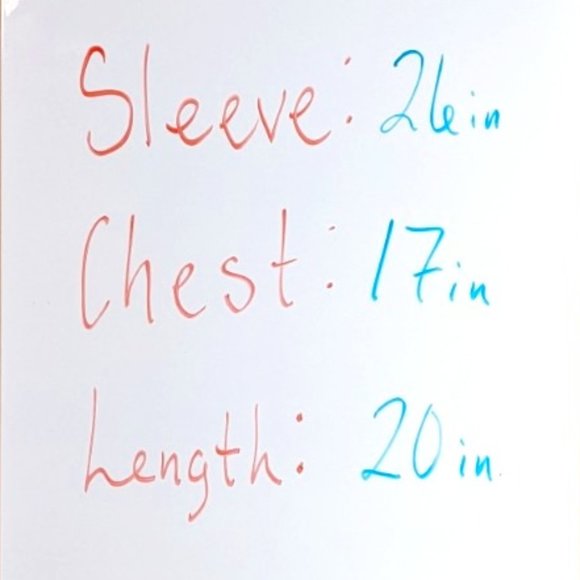 Sleeve: 26in
Chest: 17in
Length: 20in